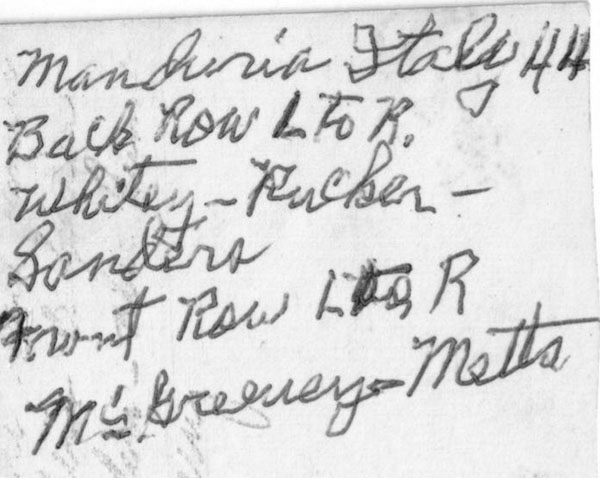 Manduria Italy 44
Back Row L to R.
Whitey - Rucker -
Sanders
Front Row L to R
McGreevey - Motta